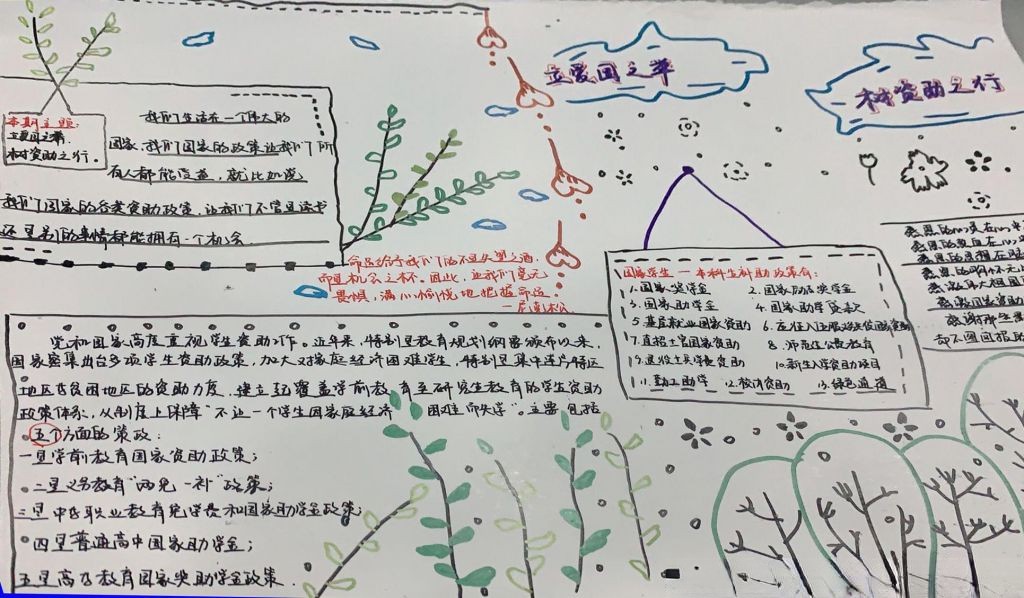 立爱国之举
树资助之行
本期主题:
立爱国之举.
树资助之行.
我们生活在一个伟大的
国家.我们国家的政策让我们所
有人都能受益,就比如说
我们国家的各类资助政策,让我们不管是读书
还是别的事情都能拥有一个机会.
命运给予我们的不是失望之酒,
而是机会之杯。因此,让我们毫无
畏惧,满心愉悦地把握命运。
—尼克松
党和国家高度重视学生资助工作。近年来,特别是教育规划纲要颁布以来,
国家密集出台多项学生资助政策,加大对家庭经济困难学生,特别是集中连片特区
地区贫困地区的资助力度,建立起覆盖学前教育至研究生教育的学生资助
政策体系,从制度上保障“不让一个学生因家庭经济 困难而失学”。主要包括
五个方面的策政:
一是学前教育国家资助政策;
二是义务教育“两免一补”政策;
三是中等职业教育免学费和国家助学金政策;
四是普通高中国家助学金;
五是高等教育国家奖助学金政策.
国家学生—本科生科助政策有:
1.国家奖学金 2.国家励志奖学金
3.国家助学金 4.国家助学贷款
5.基层就业国家资助 6.应征入伍服义务兵役国家资助
7.直招士官国家资助 8.师范生公费教育
9.退役士兵学费资助 10.新生入学资助项目
11.勤工助学 12.校内资助 13.绿色通道
感恩的心
感恩的心
感谢
感谢国家资助
感谢那些
却不图回报